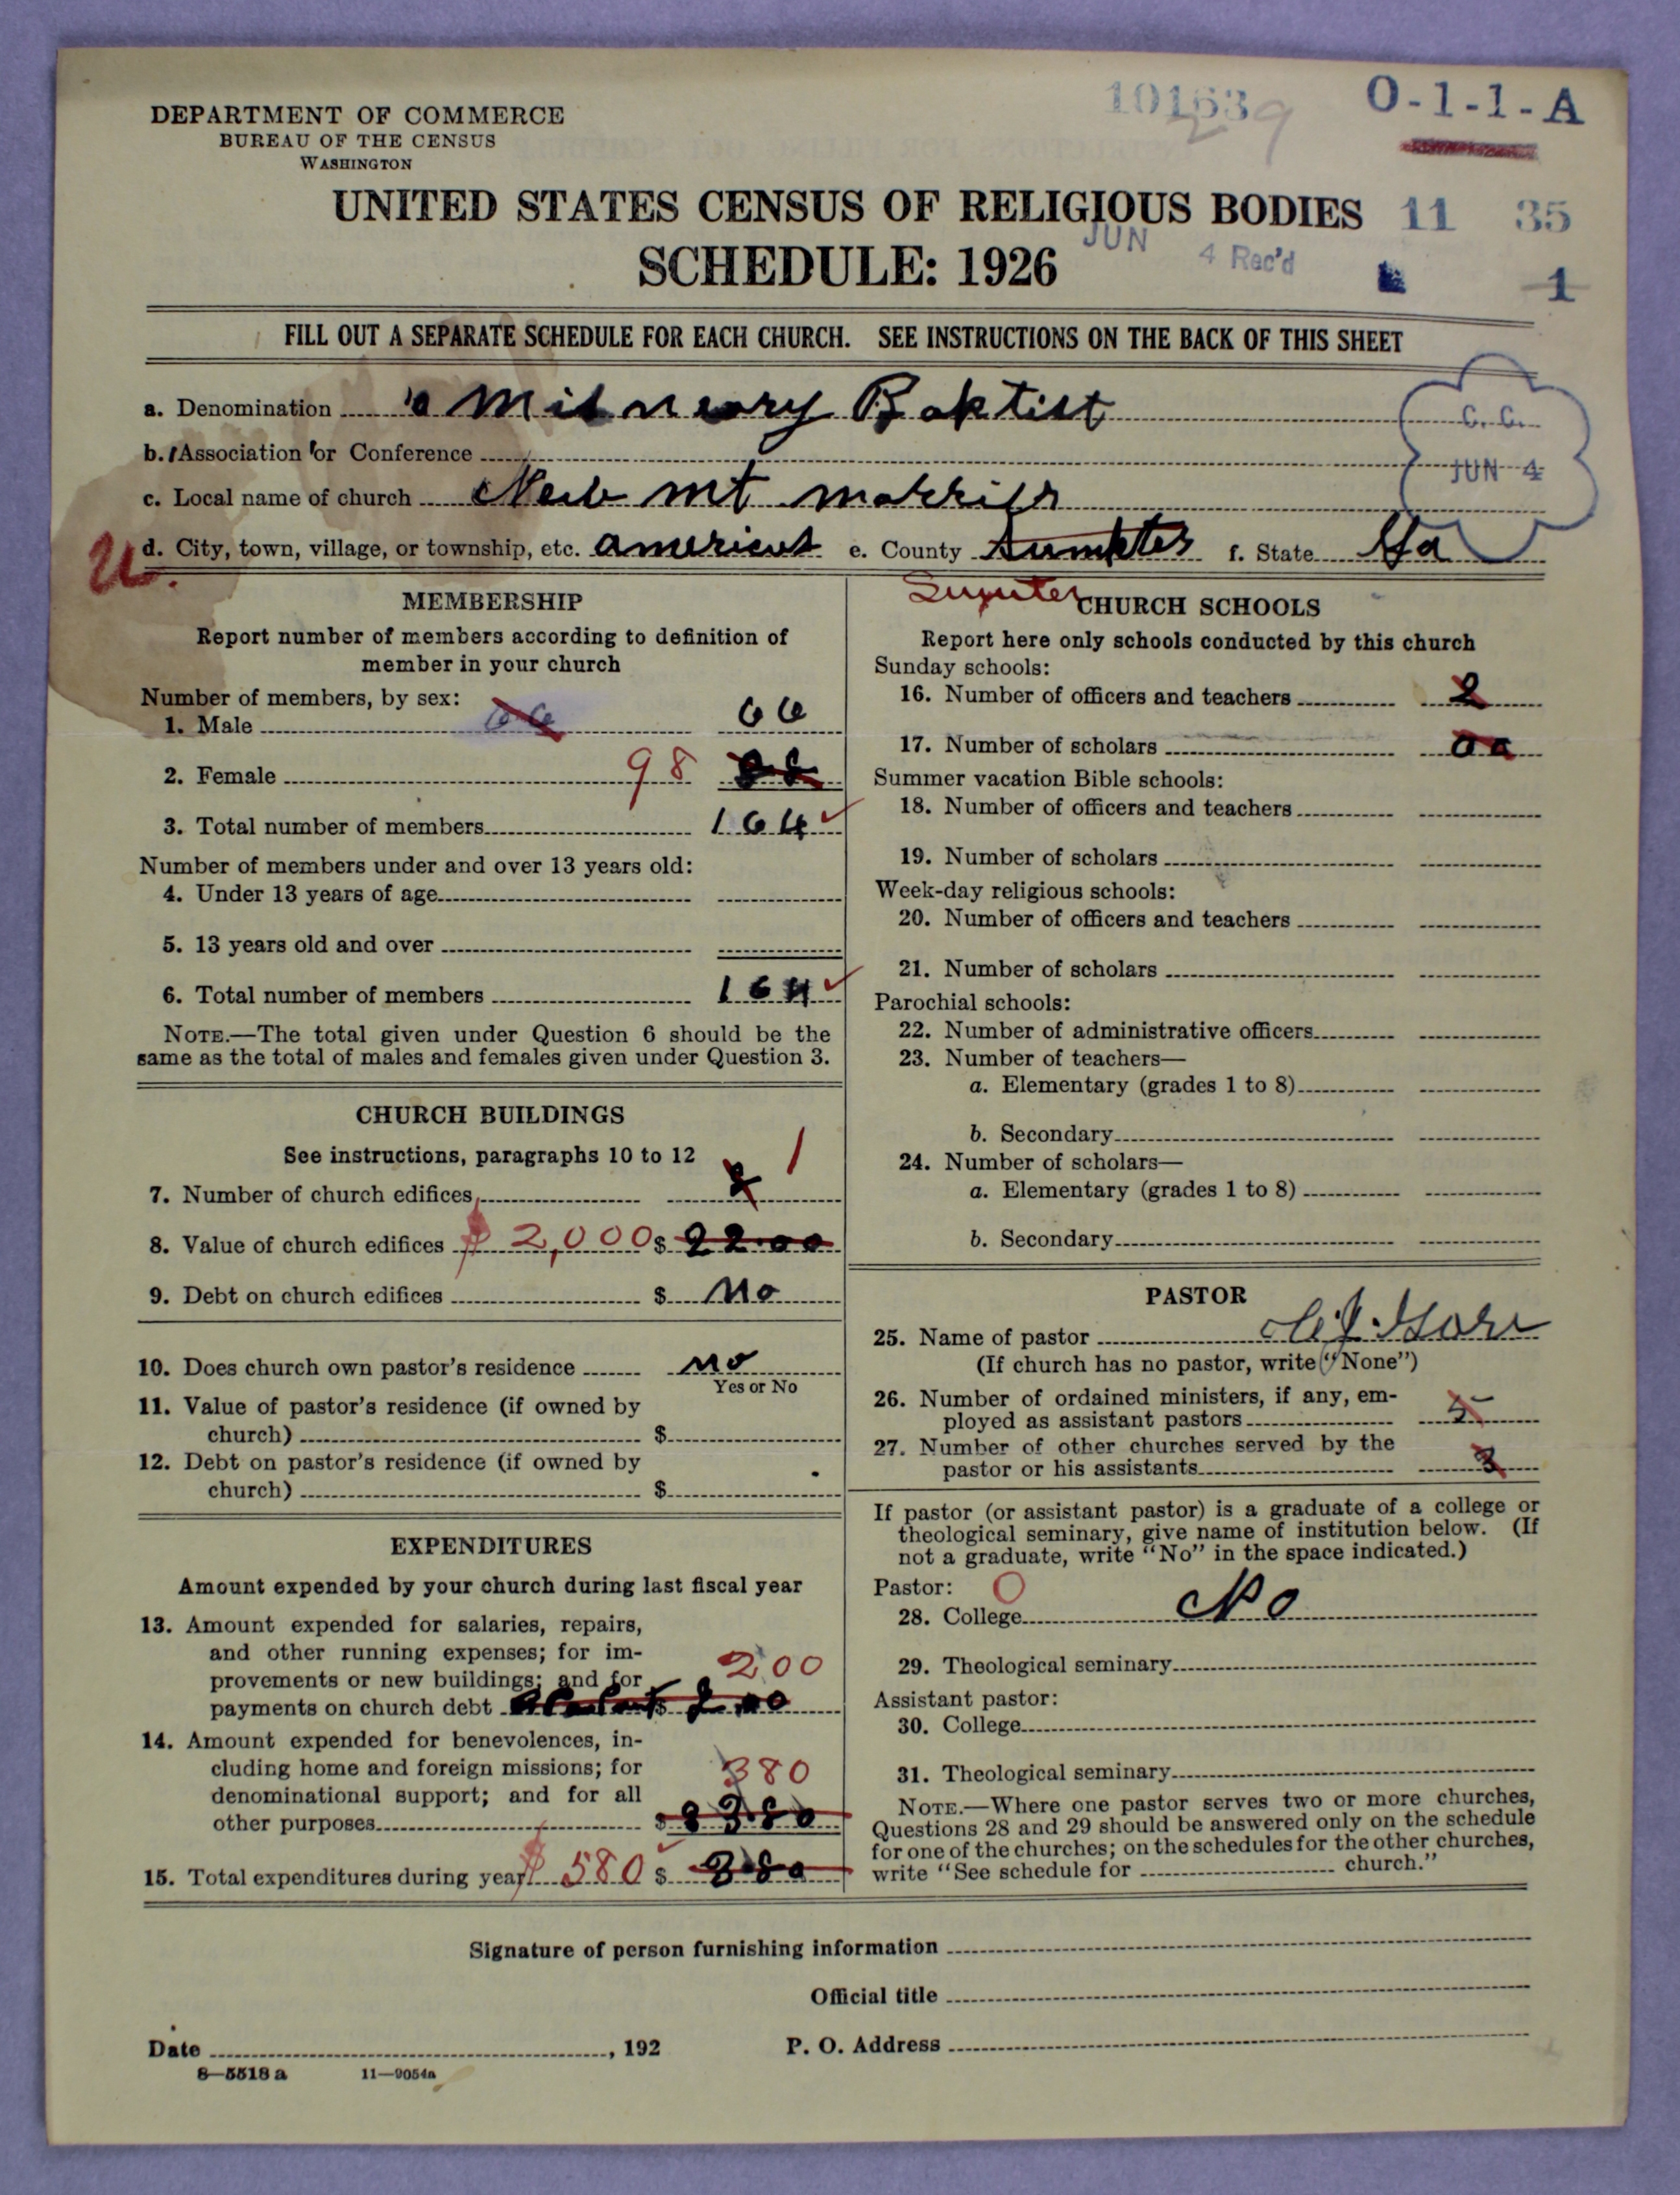 DEPARTMENT OF COMMERCE
BUREAU OF THE CENSUS
WASHINGTON
10163 29
O-1-1-A
UNITED STATES CENSUS OF RELIGIOUS BODIES
11 35
SCHEDULE: 1926
JUN 4 Rec'd
1
FILL OUT A SEPARATE SCHEDULE FOR EACH CHURCH. SEE INSTRUCTIONS ON THE BACK OF THIS SHEET
a. Denomination Misneary Baptist
C. C.
JUN 4
b. Association or Conference
c. Local name of church New mt
U. d. City, town, village, or township, etc. americus e. County Sumpter f. State Ga
Sumter
MEMBERSHIP
Report number of members according to definition of
member in your church
Number of members, by sex:
1. Male 66 66
2. Female 98 88
3. Total number of members 164
Number of members under and over 13 years old:
4. Under 13 years of age
5. 13 years old and over
6. Total number of members 164
NOTE.—The total given under Question 6 should be the
same as the total of males and females given under Question 3.
CHURCH BUILDINGS
See instructions, paragraphs 10 to 12
7. Number of church edifices 2 1
8. Value of church edifices $ 2,000 $ 22.00
9. Debt on church edifices $ No
10. Does church own pastor's residence no
Yes or No
11. Value of pastor's residence (if owned by
church) $
12. Debt on pastor's residence (if owned by
church) $
EXPENDITURES
Amount expended by your church during last fiscal year
13. Amount expended for salaries, repairs,
and other running expenses; for im-
provements or new buildings; and for 200
payments on church debt $ 200
14. Amount expended for benevolences, in-
cluding home and foreign missions; for 380
denominational support; and for all
other purposes $ 83.80
15. Total expenditures during year $ 580 $ 380
CHURCH SCHOOLS
Report here only schools conducted by this church
Sunday schools:
16. Number of officers and teachers 2
17. Number of scholars
Summer vacation Bible schools:
18. Number of officers and teachers
19. Number of scholars
Week-day religious schools:
20. Number of officers and teachers
21. Number of scholars
Parochial schools:
22. Number of administrative officers
23. Number of teachers—
a. Elementary (grades 1 to 8)
b. Secondary
24. Number of scholars—
a. Elementary (grades 1 to 8)
b. Secondary
PASTOR
25. Name of pastor
(If church has no pastor, write "None")
26. Number of ordained ministers, if any, em-
ployed as assistant pastors 5
27. Number of other churches served by the
pastor or his assistants 3
If pastor (or assistant pastor) is a graduate of a college or
theological seminary, give name of institution below. (If
not a graduate, write "No" in the space indicated.)
Pastor: 0
28. College No
29. Theological seminary
Assistant pastor:
30. College
31. Theological seminary
NOTE.—Where one pastor serves two or more churches,
Questions 28 and 29 should be answered only on the schedule
for one of the churches; on the schedules for the other churches,
write "See schedule for church."
Signature of person furnishing information
Official title
Date , 192 P. O. Address
8—5518 a 11—9054a